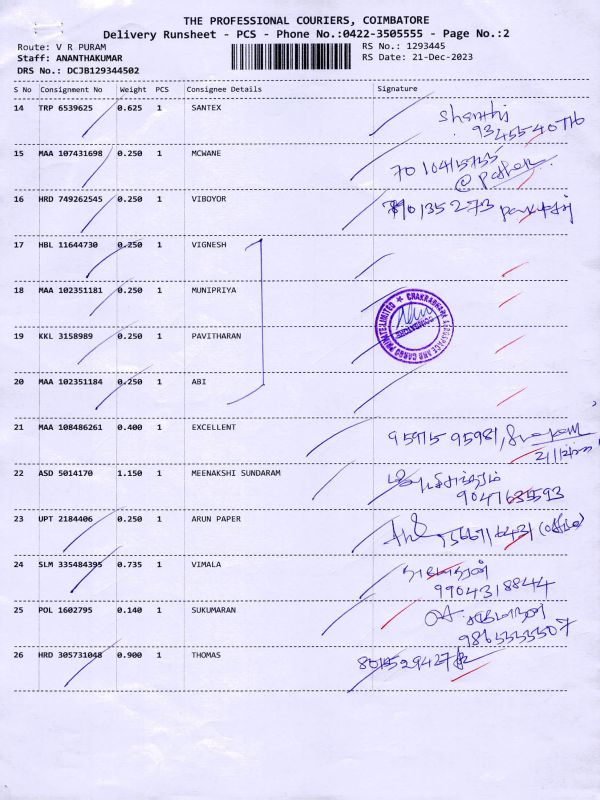 THE PROFESSIONAL COURIERS, COIMBATORE
Delivery Runsheet - PCS - Phone No.:0422-3505555 - Page No.:2
Route: V R PURAM RS No.: 1293445
Staff: ANANTHAKUMAR RS Date: 21-Dec-2023
DRS No.: DCJB129344502
S No Consignment No Weight PCS Consignee Details Signature
14 TRP 6539625 0.625 1 SANTEX Shanthi
15 MAA 107431698 0.250 1 MCWANE
16 HRD 749262545 0.250 1 VIBOYOR
17 HBL 11644730 0.250 1 VIGNESH
18 MAA 102351181 0.250 1 MUNIPRIYA
19 KKL 3158989 0.250 1 PAVITHARAN
20 MAA 102351184 0.250 1 ABI
21 MAA 108486261 0.400 1 EXCELLENT 95975 95981,
22 ASD 5014170 1.150 1 MEENAKSHI SUNDARAM
9047635593
23 UPT 2184406 0.250 1 ARUN PAPER (office)
24 SLM 335484395 0.735 1 VIMALA
9904318844
25 POL 1602795 0.140 1 SUKUMARAN
9865555507
26 HRD 305731048 0.900 1 THOMAS